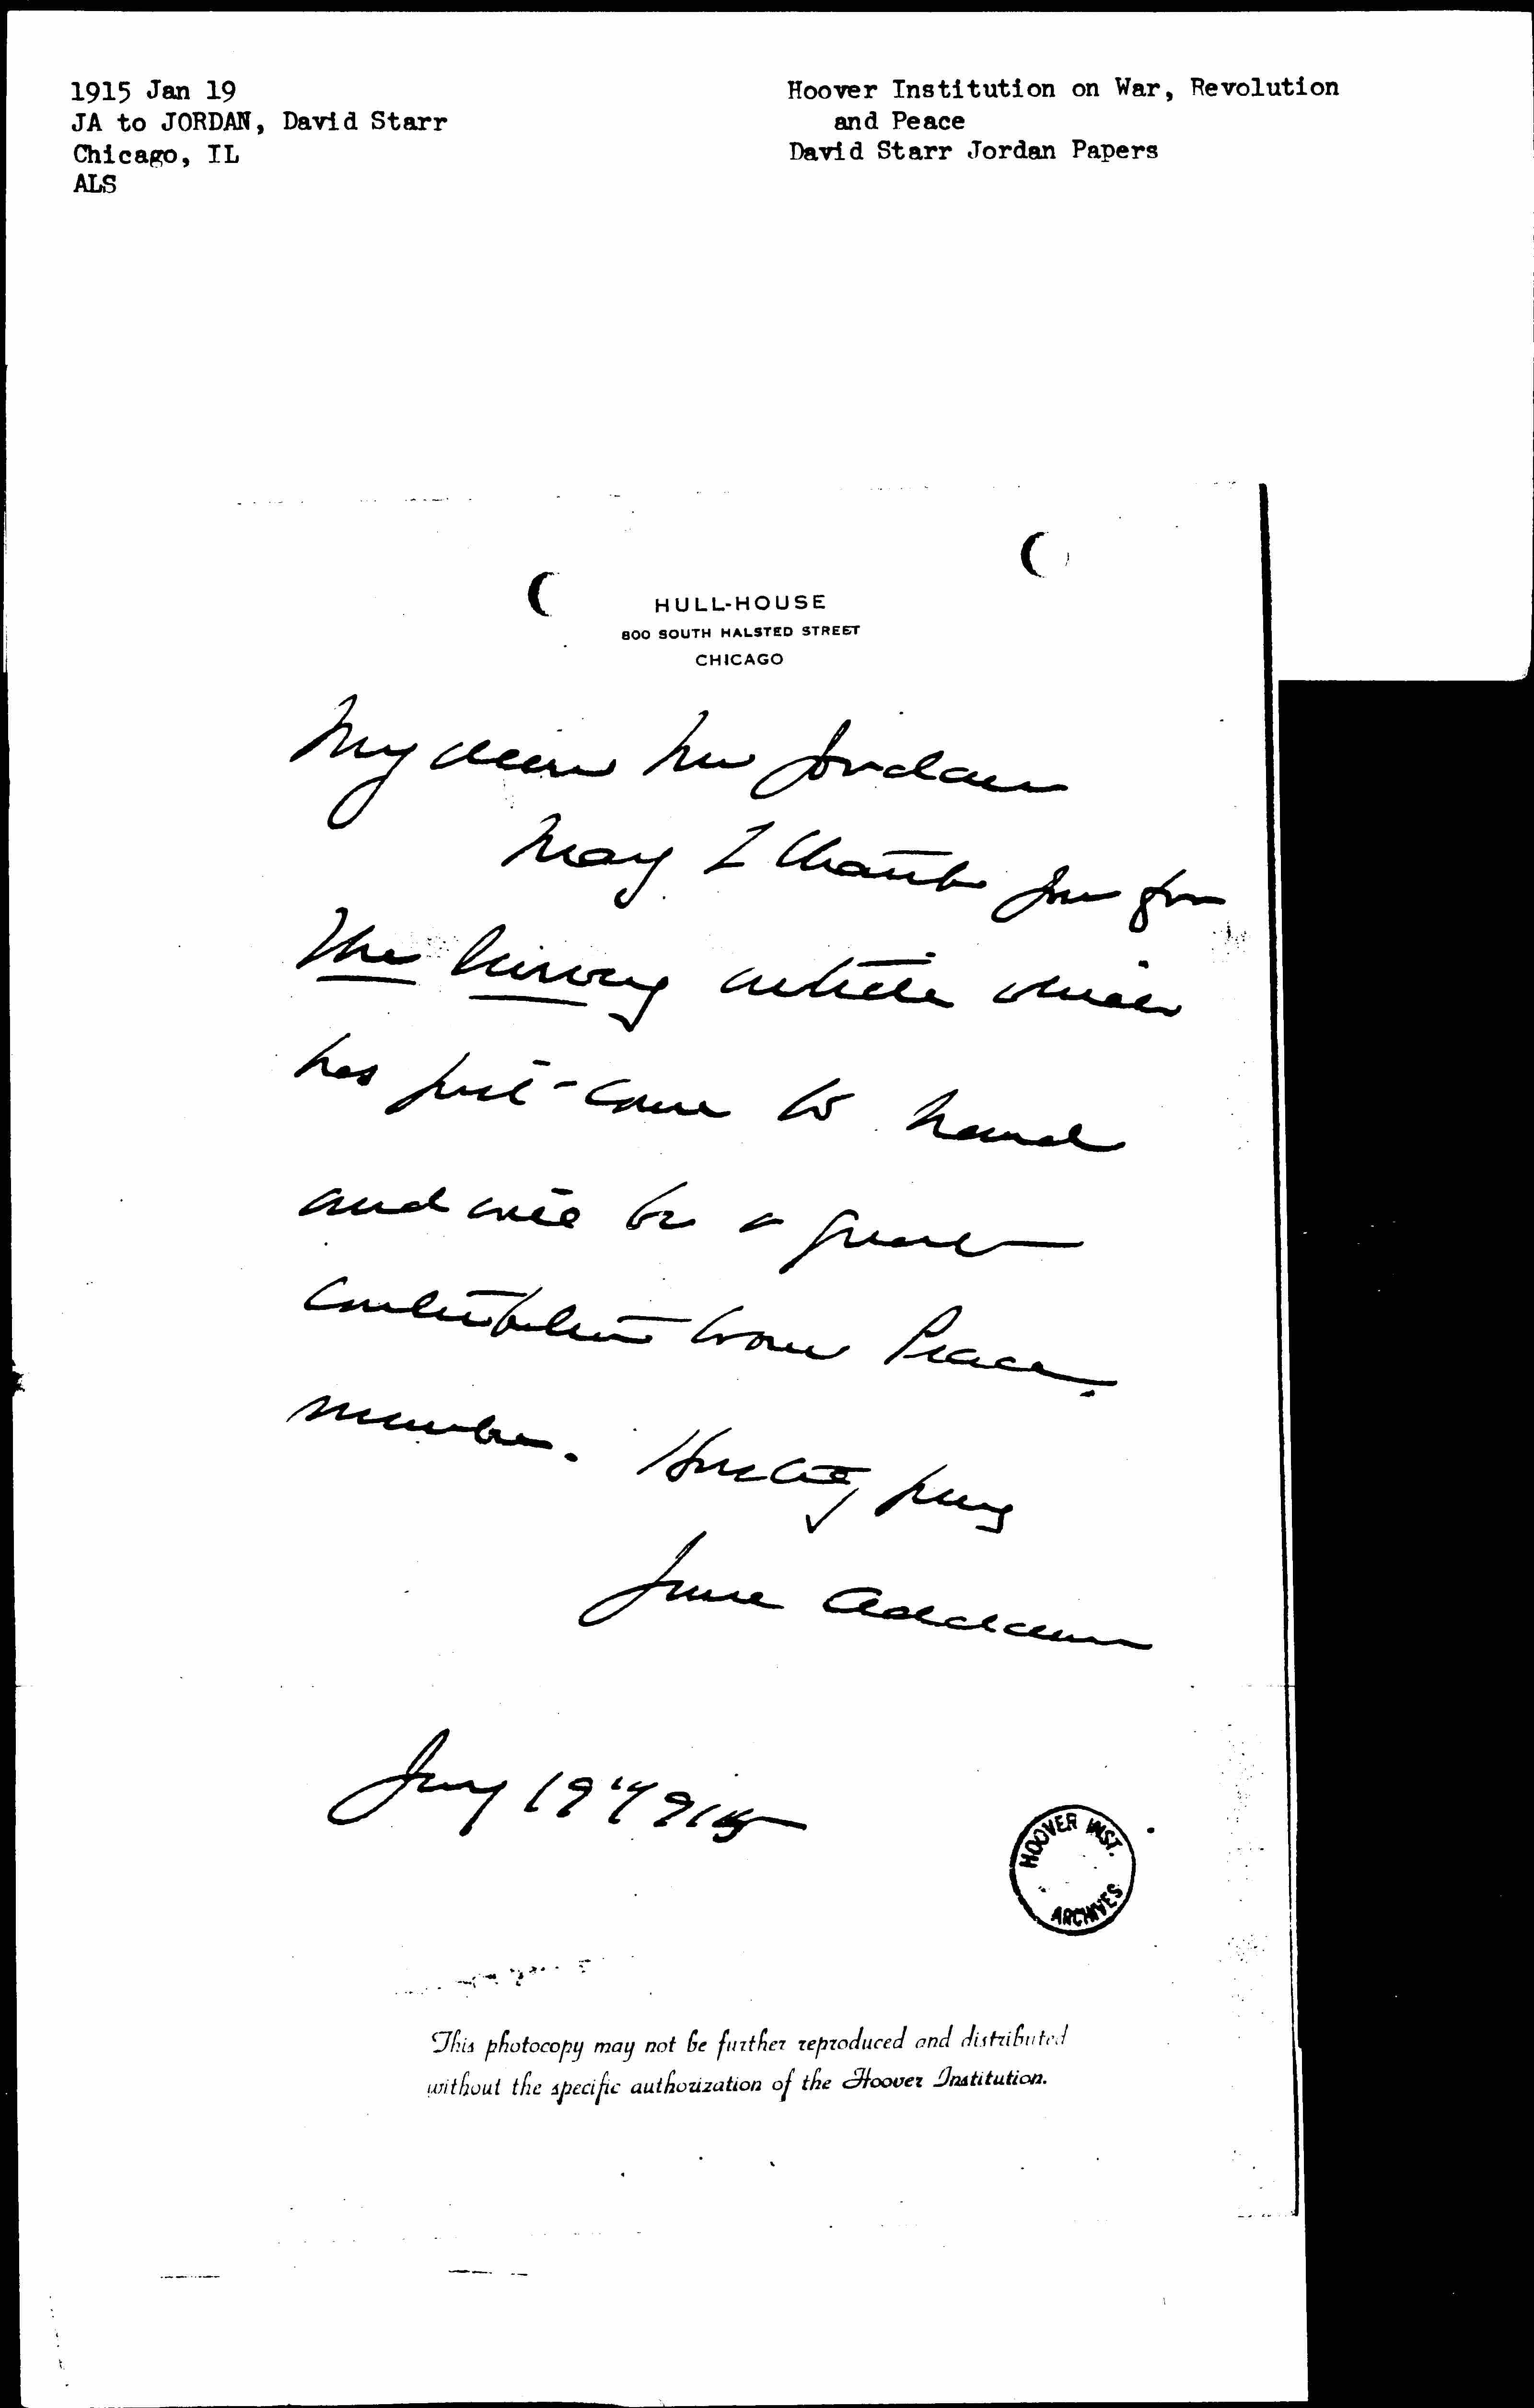 1915 Jan 19
JA to JORDAN, David Starr
Chicago, IL
ALS
Hoover Institution on War, Revolution
and Peace
David Starr Jordan Papers
HULL-HOUSE
800 SOUTH HALSTED STREET
CHICAGO
My dear Mr Jordan
May I thank you for
The Survey article which
has just come to hand
and will be a great
contribution to our Peace
number.
Jane Addams
Jany 19" 1915
HOOVER INST.
ARCHIVES
This photocopy may not be further reproduced and distributed
without the specific authorization of the Hoover Institution.